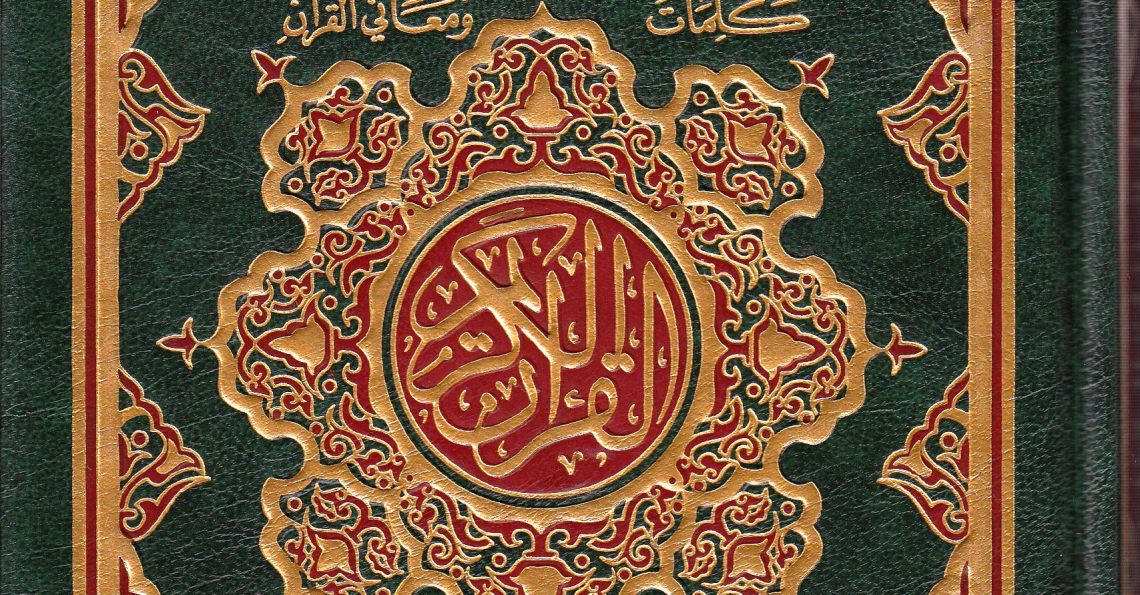 كَلِمَات وَمَعَاني القُرآن
القرآن الكريم